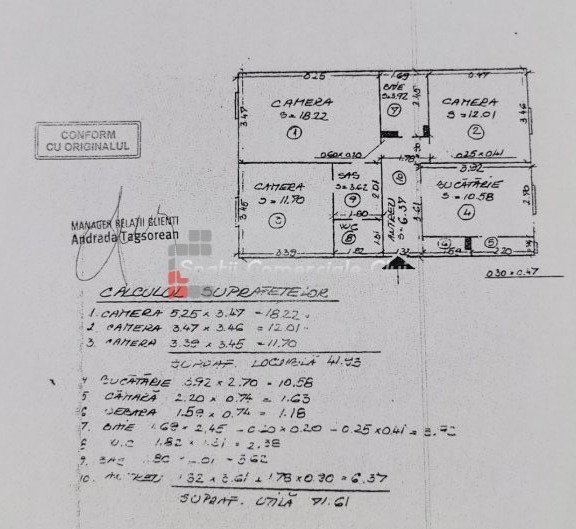 5.25
1.69
3.47
CAMERA
S=18.22
1
3.47
BAIE
S=3.92
7
2.45
CAMERA
S=12.01
2
3.46
CONFORM
CU ORIGINALUL
0.20x0.20
1.78
0.25x0.41
3.92
MANAGER RELATII CLIENTI
Andrada Tagsorean
3.45
CAMERA
S=11.70
3
SAS
S=3.62
9
2.01
1.80
WC
8
1.31
10
ANTREU
S=6.37
3.61
BUCĂTĂRIE
S=10.58
4
2.70
6
5
3.39
1.82
1.32
1.59
2.20
0.74
0.30x0.47
Spatii Comerciale Cluj
CALCULUL SUPRAFETELOR
1. CAMERA 5.25 x 3.47 = 18.22
2 CAMERA 3.47 x 3.46 = 12.01
3. CAMERA 3.39 x 3.45 = 11.70
SUPRAF. LOCUIBILĂ 41.93
4 BUCĂTĂRIE 3.92 x 2.70 = 10.58
5 CĂMARĂ 2.20 x 0.74 = 1.63
6 DEBARA 1.59 x 0.74 = 1.18
7. BAIE 1.69 x 2.45 - 0.20 x 0.20 - 0.25 x 0.41 = 3.92
8 W.C 1.82 x 1.31 = 2.38
9. SAS 1.80 x 2.01 = 3.62
10. ANTREU 1.32 x 3.61 + 1.78 x 0.90 = 6.37
SUPRAF. UTILĂ 71.61